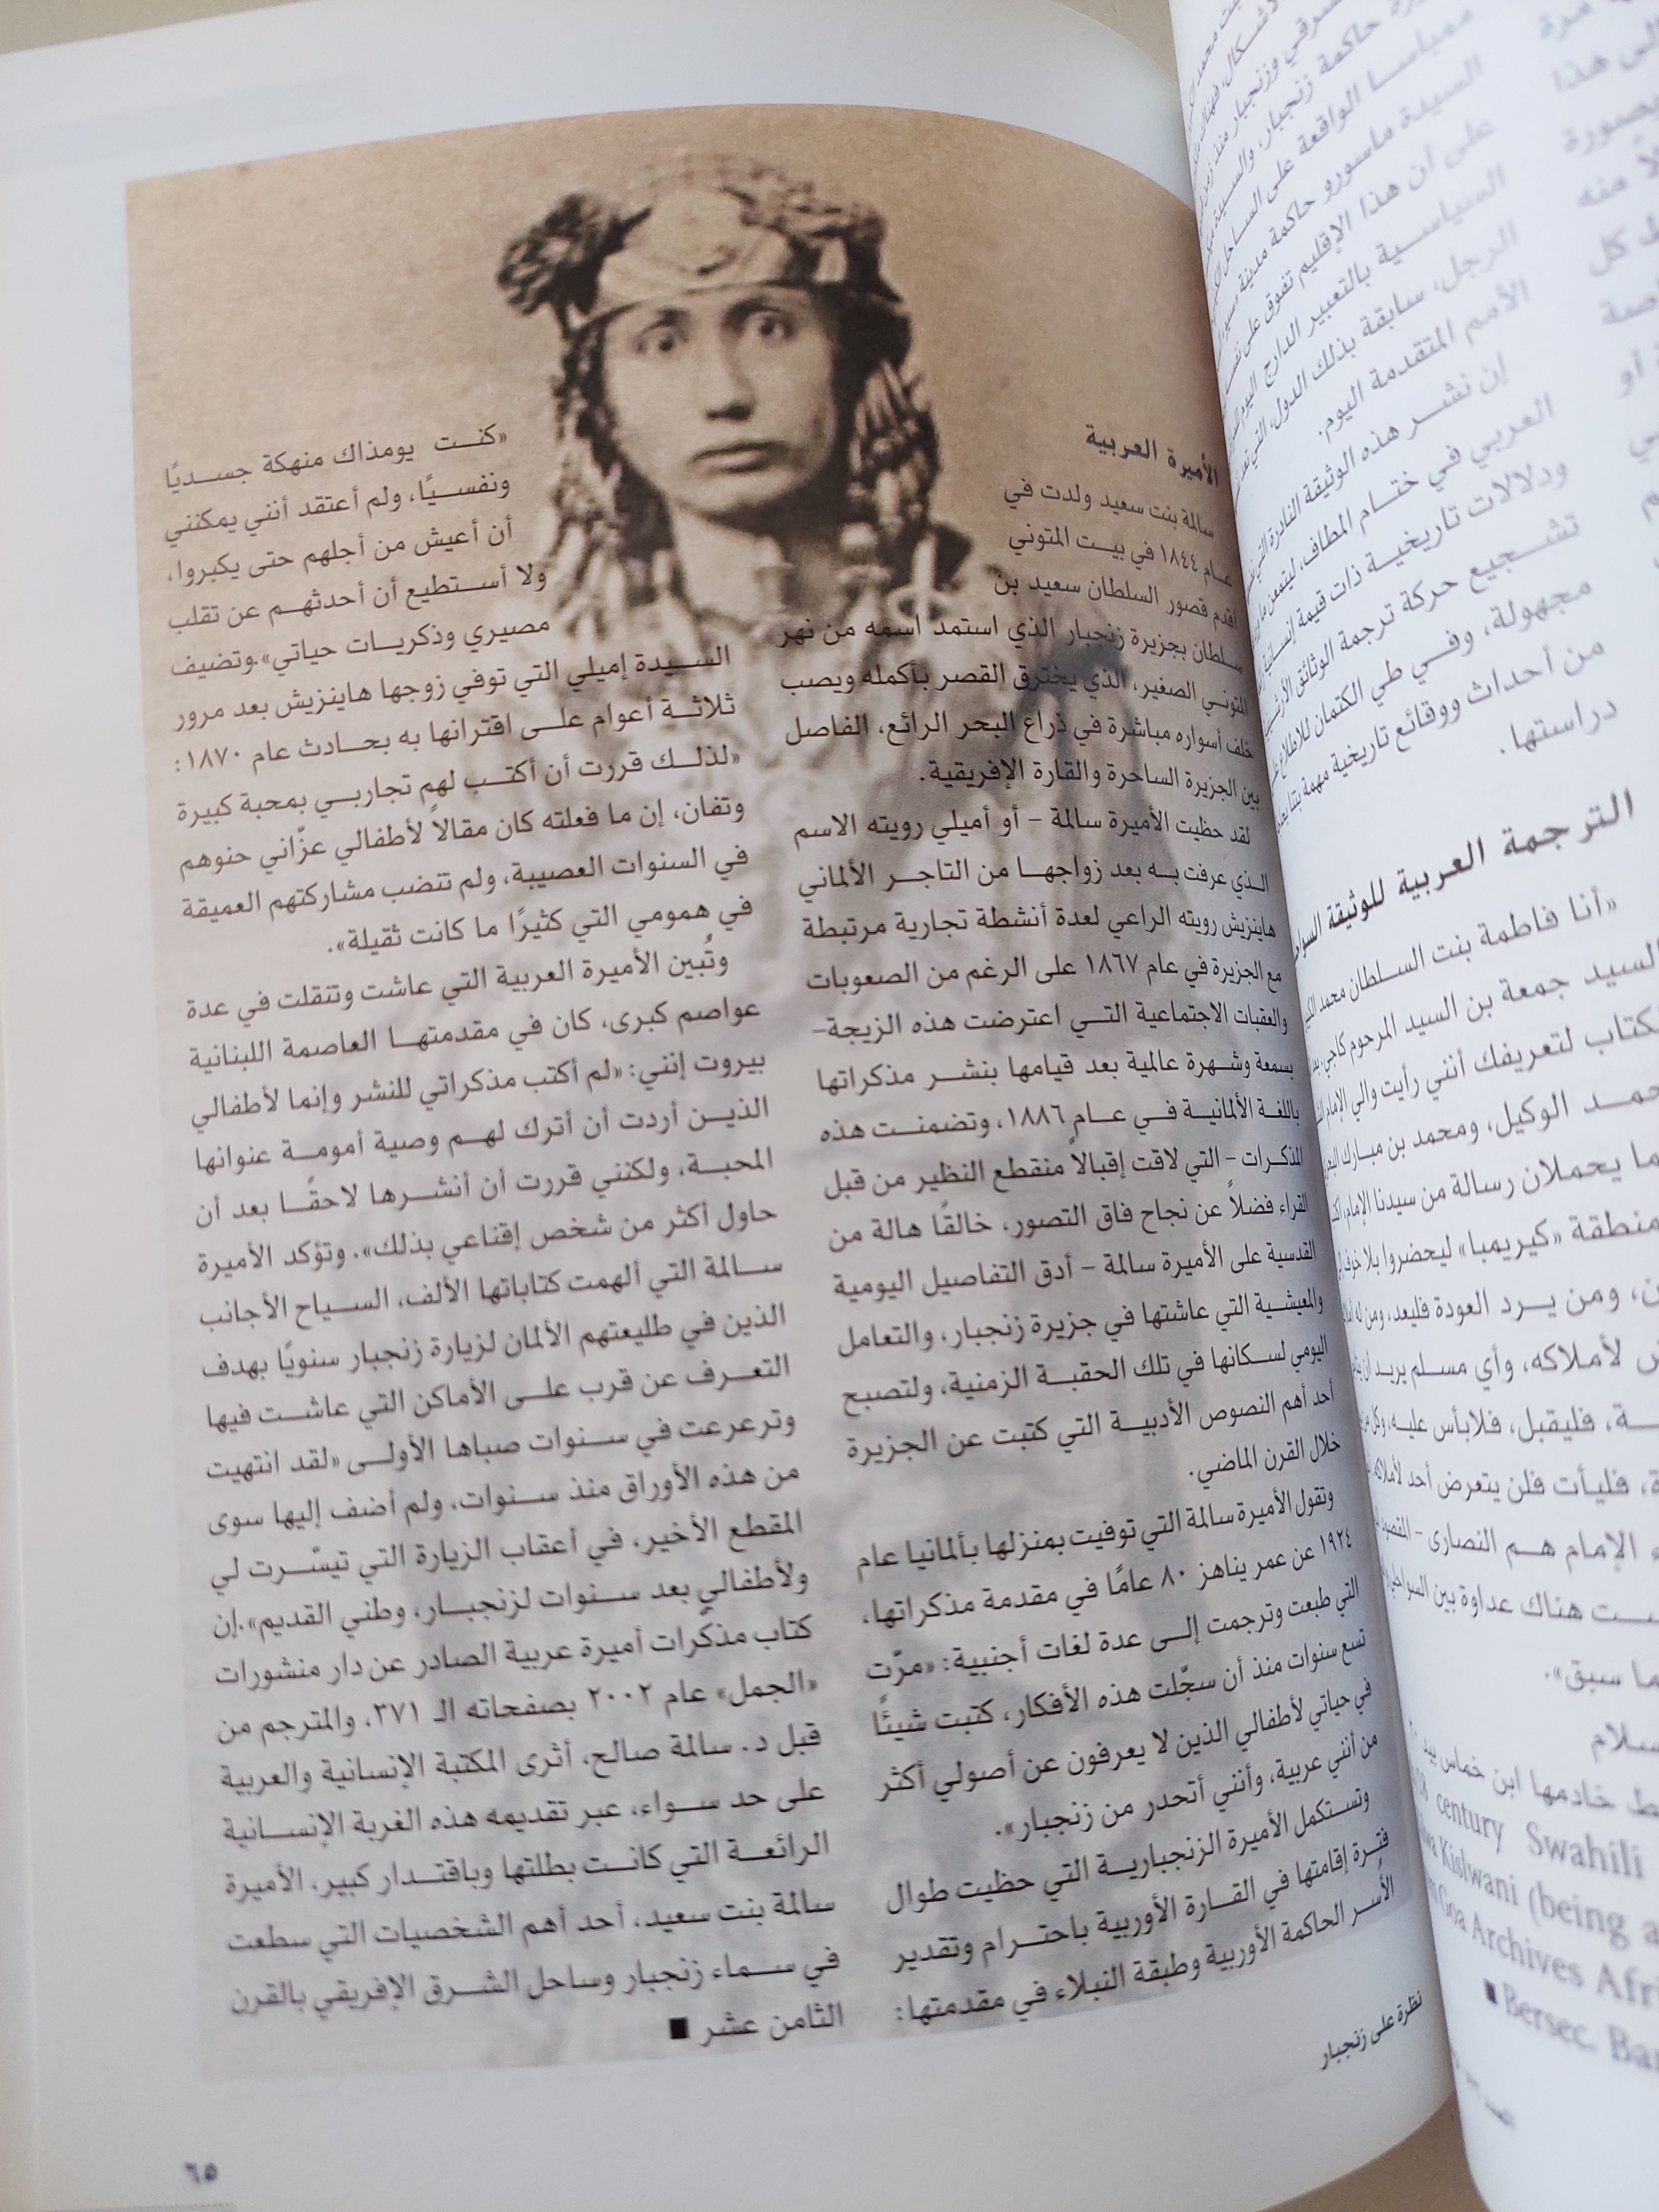 الأميرة العربية
سالمة بنت سعيد ولدت في
عـام ١٨٤٤ في بيـت المتوني
أقدم قصور السلطان سعيد بن
سـلطان بجزيرة زنجبار الذي استمد اسمه من نهر
المتوني الصغير، الذي يخترق القصر بأكمله ويصب
خلف أسواره مباشرة في ذراع البحر الرائع، الفاصل
بين الجزيرة الساحرة والقارة الإفريقية.
لقد حظيت الأميرة سالمة – أو أميلي رويته الاسم
الـذي عرفت بـه بعد زواجهـا من التاجـر الألماني
هاينزيش رويته الراعي لعدة أنشطة تجارية مرتبطة
مع الجزيرة في عام ١٨٦٧ على الرغم من الصعوبات
والعقبات الاجتماعية التـي اعترضت هذه الزيجة–
بسمعة وشـهرة عالمية بعد قيامها بنشـر مذكراتها
باللغة الألمانيـة فـي عـام ١٨٨٦، وتضمنـت هذه
المذكـرات – التي لاقت إقبالاً منقطع النظير من قبل
القراء فضلاً عن نجاح فاق التصور، خالقًا هالة من
القدسية على الأميرة سالمة – أدق التفاصيل اليومية
والمعيشـية التي عاشتها في جزيرة زنجبار، والتعامل
اليومي لسـكانها في تلك الحقبـة الزمنية، ولتصبح
أحد أهم النصوص الأدبيـة التي كتبت عن الجزيرة
خلال القرن الماضي.
وتقول الأميرة سالمة التي توفيت بمنزلها بألمانيا عام
١٩٢٤ عن عمر يناهز ٨٠ عامًا في مقدمة مذكراتها،
التي طبعت وترجمت إلـى عدة لغات أجنبية: «مرّت
تسع سنوات منذ أن سجّلت هذه الأفكار، كتبت شيئًا
في حياتي لأطفالي الذين لا يعرفون عن أصولي أكثر
من أنني عربية، وأنني أتحدر من زنجبار».
وتسـتكمل الأميرة الزنجباريـة التي حظيت طوال
فتـرة إقامتها في القـارة الأوربية باحتـرام وتقدير
الأُسر الحاكمة الأوربية وطبقة النبلاء في مقدمتها:
«كنـت يومذاك منهكة جسـديًا
ونفسـيًا، ولم أعتقد أنني يمكنني
أن أعيش من أجلهم حتى يكبروا،
ولا أسـتطيع أن أحدثهـم عن تقلب
مصيري وذكريـات حياتي».وتضيف
السـيدة إميلي التي توفي زوجها هاينزيش بعد مرور
ثلاثـة أعوام علـى اقترانها به بحـادث عام ١٨٧٠:
«لذلـك قررت أن أكتـب لهم تجاربـي بمحبة كبيرة
وتفان، إن ما فعلته كان مقالاً لأطفالي عزّاني حنوهم
في السنوات العصيبة، ولم تنضب مشاركتهم العميقة
في همومي التي كثيرًا ما كانت ثقيلة».
وتُبين الأميرة العربية التي عاشت وتنقلت في عدة
عواصم كبرى، كان في مقدمتهـا العاصمة اللبنانية
بيروت إنني: «لم أكتب مذكراتي للنشر وإنما لأطفالي
الذيـن أردت أن أترك لهـم وصية أمومـة عنوانها
المحبـة، ولكنني قررت أن أنشـرها لاحقًـا بعد أن
حاول أكثر من شخص إقناعي بذلك». وتؤكد الأميرة
سـالمة التي ألهمت كتاباتها الألف، السـياح الأجانب
الذين في طليعتهم الألمان لزيارة زنجبار سنويًا بهدف
التعـرف عن قرب علـى الأماكن التي عاشـت فيها
وترعرعت في سـنوات صباها الأولـى «لقد انتهيت
من هذه الأوراق منذ سـنوات، ولم أضف إليها سوى
المقطع الأخير، في أعقاب الزيارة التي تيسّـرت لي
ولأطفالي بعد سـنوات لزنجبـار، وطني القديم».إن
كتاب مذكّرات أميرة عربية الصادر عن دار منشورات
«الجمل» عام ٢٠٠٢ بصفحاته الـ ٣٧١، والمترجم من
قبل د. سالمة صالح، أثرى المكتبة الإنسانية والعربية
على حد سـواء، عبر تقديمه هذه الغربة الإنسـانية
الرائعـة التي كانـت بطلتها وباقتـدار كبير، الأميرة
سالمة بنت سعيد، أحد أهم الشخصيات التي سطعت
في سـماء زنجبار وساحل الشـرق الإفريقي بالقرن
الثامن عشر ■
نظرة على زنجبار
٦٥
السيدة ماسورو حاكمة مدينة
على أن هذا الإقليم تفوق على
السياسـية بالتعبير الدارج اليوم
الرجل، سابقة بذلك الدول، التي
الأمم المتقدمة اليوم.
إن نشـر هذه الوثيقة النادرة
العربي في ختـام المطاف، ليتمعن
ودلالات تاريخيـة ذات قيمة إنسانية
تشـجيع حركة ترجمة الوثائق
مجهولة، وفـي طي الكتمان للاطلاع
من أحداث ووقائع تاريخية مهمة
دراستها.
الترجمة العربية للوثيقة
«أنا فاطمة بنت السـلطان محمد
السيد جمعة بن السيد المرحوم
لتعريفك أنني رأيت والي الإمام
الوكيل، ومحمد بن مبـارك
يحملان رسالة من سيدنا الإمام،
«كيريمبا» ليحضروا بلا خوف
ومن يـرد العودة فليعد، ومن له
لأملاكه، وأي مسـلم يريد أن
فليقبل، فلابأس عليه، وكل من
فليأت فلن يتعرض أحد لأملاكه
الإمام هـم النصارى – المقصود
هناك عداوة بين السواحلي
ما سبق».
خادمها ابن خماس
century Swahili
Kislwani (being a
Goa Archives
Bersec. ■